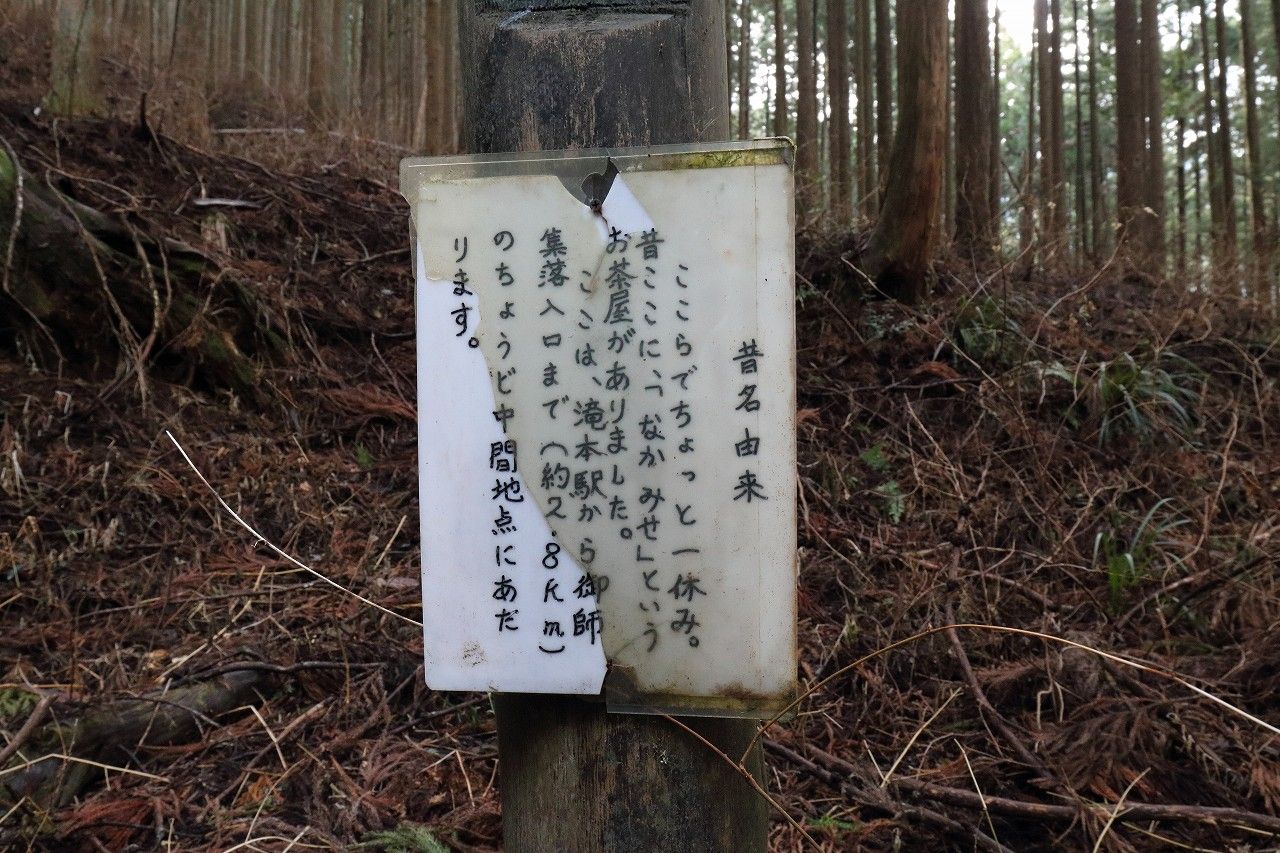 昔名由来
ここらでちょっと一休み。
昔ここに、「なかみせ」という
お茶屋がありました。
ここは、滝本駅から御師
集落入口まで(約2.8Km)
のちょうど中間地点にあだ
ります。